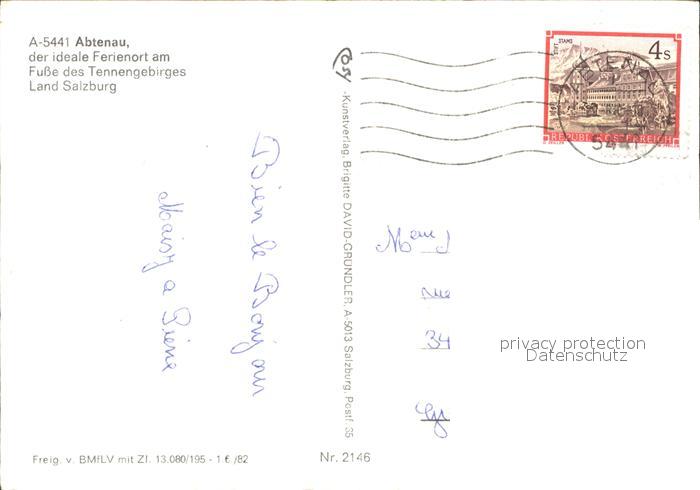 A-5441 Abtenau,
der ideale Ferienort am
Fuße des Tennengebirges
Land Salzburg
Bien le Bonjour
Maisy a Pierre
-Kunstverlag, Brigitte DAVID-GRÜNDLER, A 5013 Salzburg, Postf. 35
STIFT STAMS
4s
REPUBLIK ÖSTERREICH
ABTENAU
5441
Mame
rue
34
privacy protection
Datenschutz
Freig. v. BMfLV mit Zl. 13.080/195 - 1.6./82
Nr. 2146